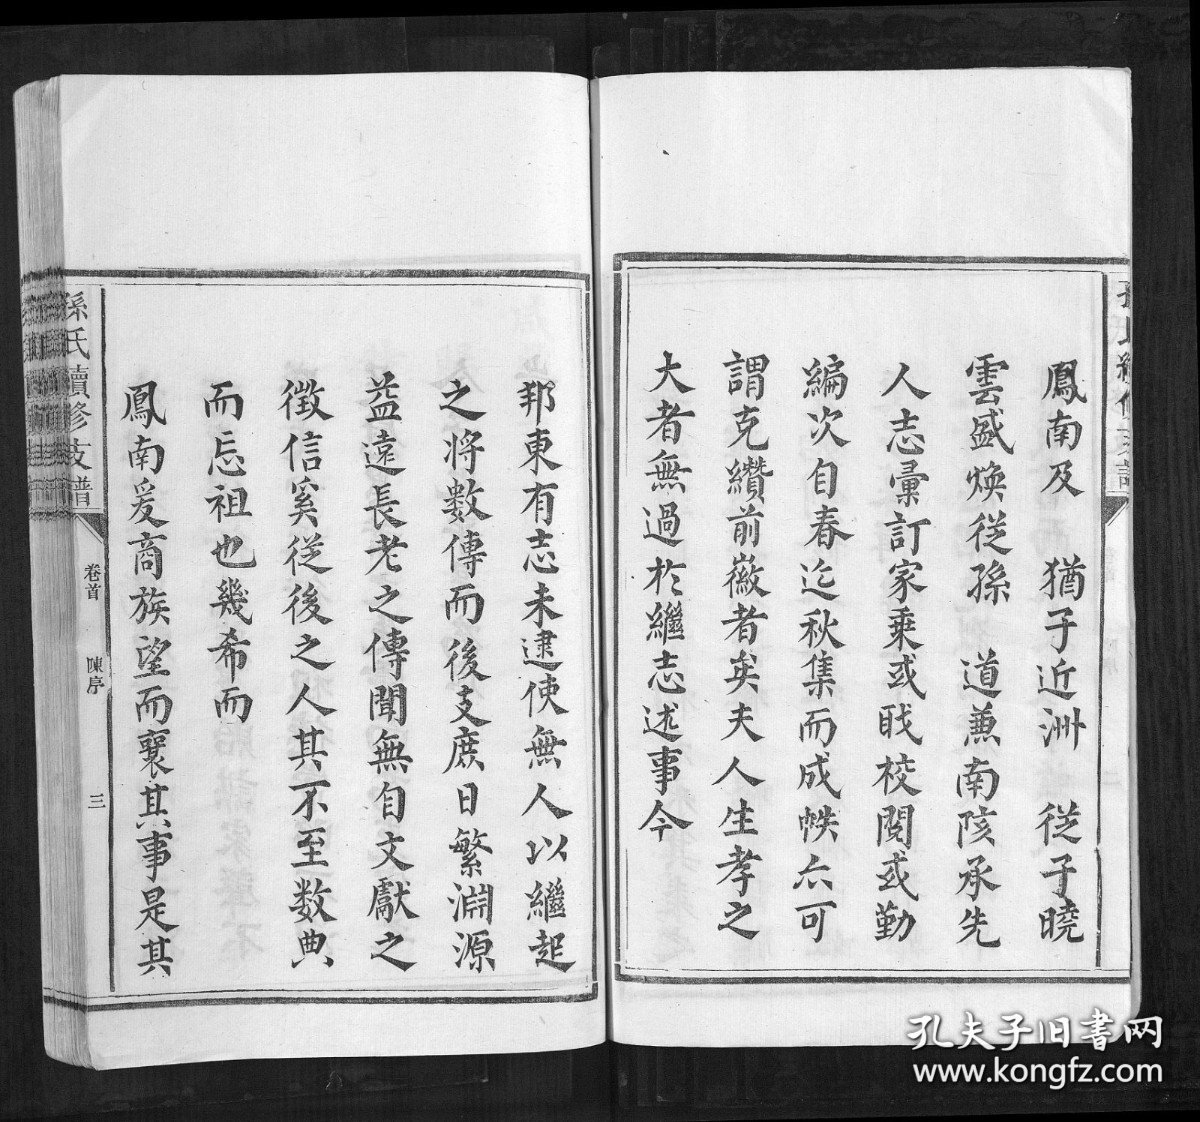 鳳南及 猶子近洲 從子曉
雲盛煥從孫 道兼南陔承先
人志彙訂家乘或戝校閱或勤
編次自春迄秋集而成帙亦可
謂克纘前徽者矣夫人生孝之
大者無過於繼志述事今
邦東有志未逮使無人以繼起
之將數傳而後支庶日繁淵源
益遠長老之傳聞無自文獻之
徵信奚從後之人其不至數典
而忘祖也幾希而
鳳南爰商族望而襄其事是其
孫氏續修支譜
卷首
陳序
三
孔夫子旧书网
www.kongfz.com